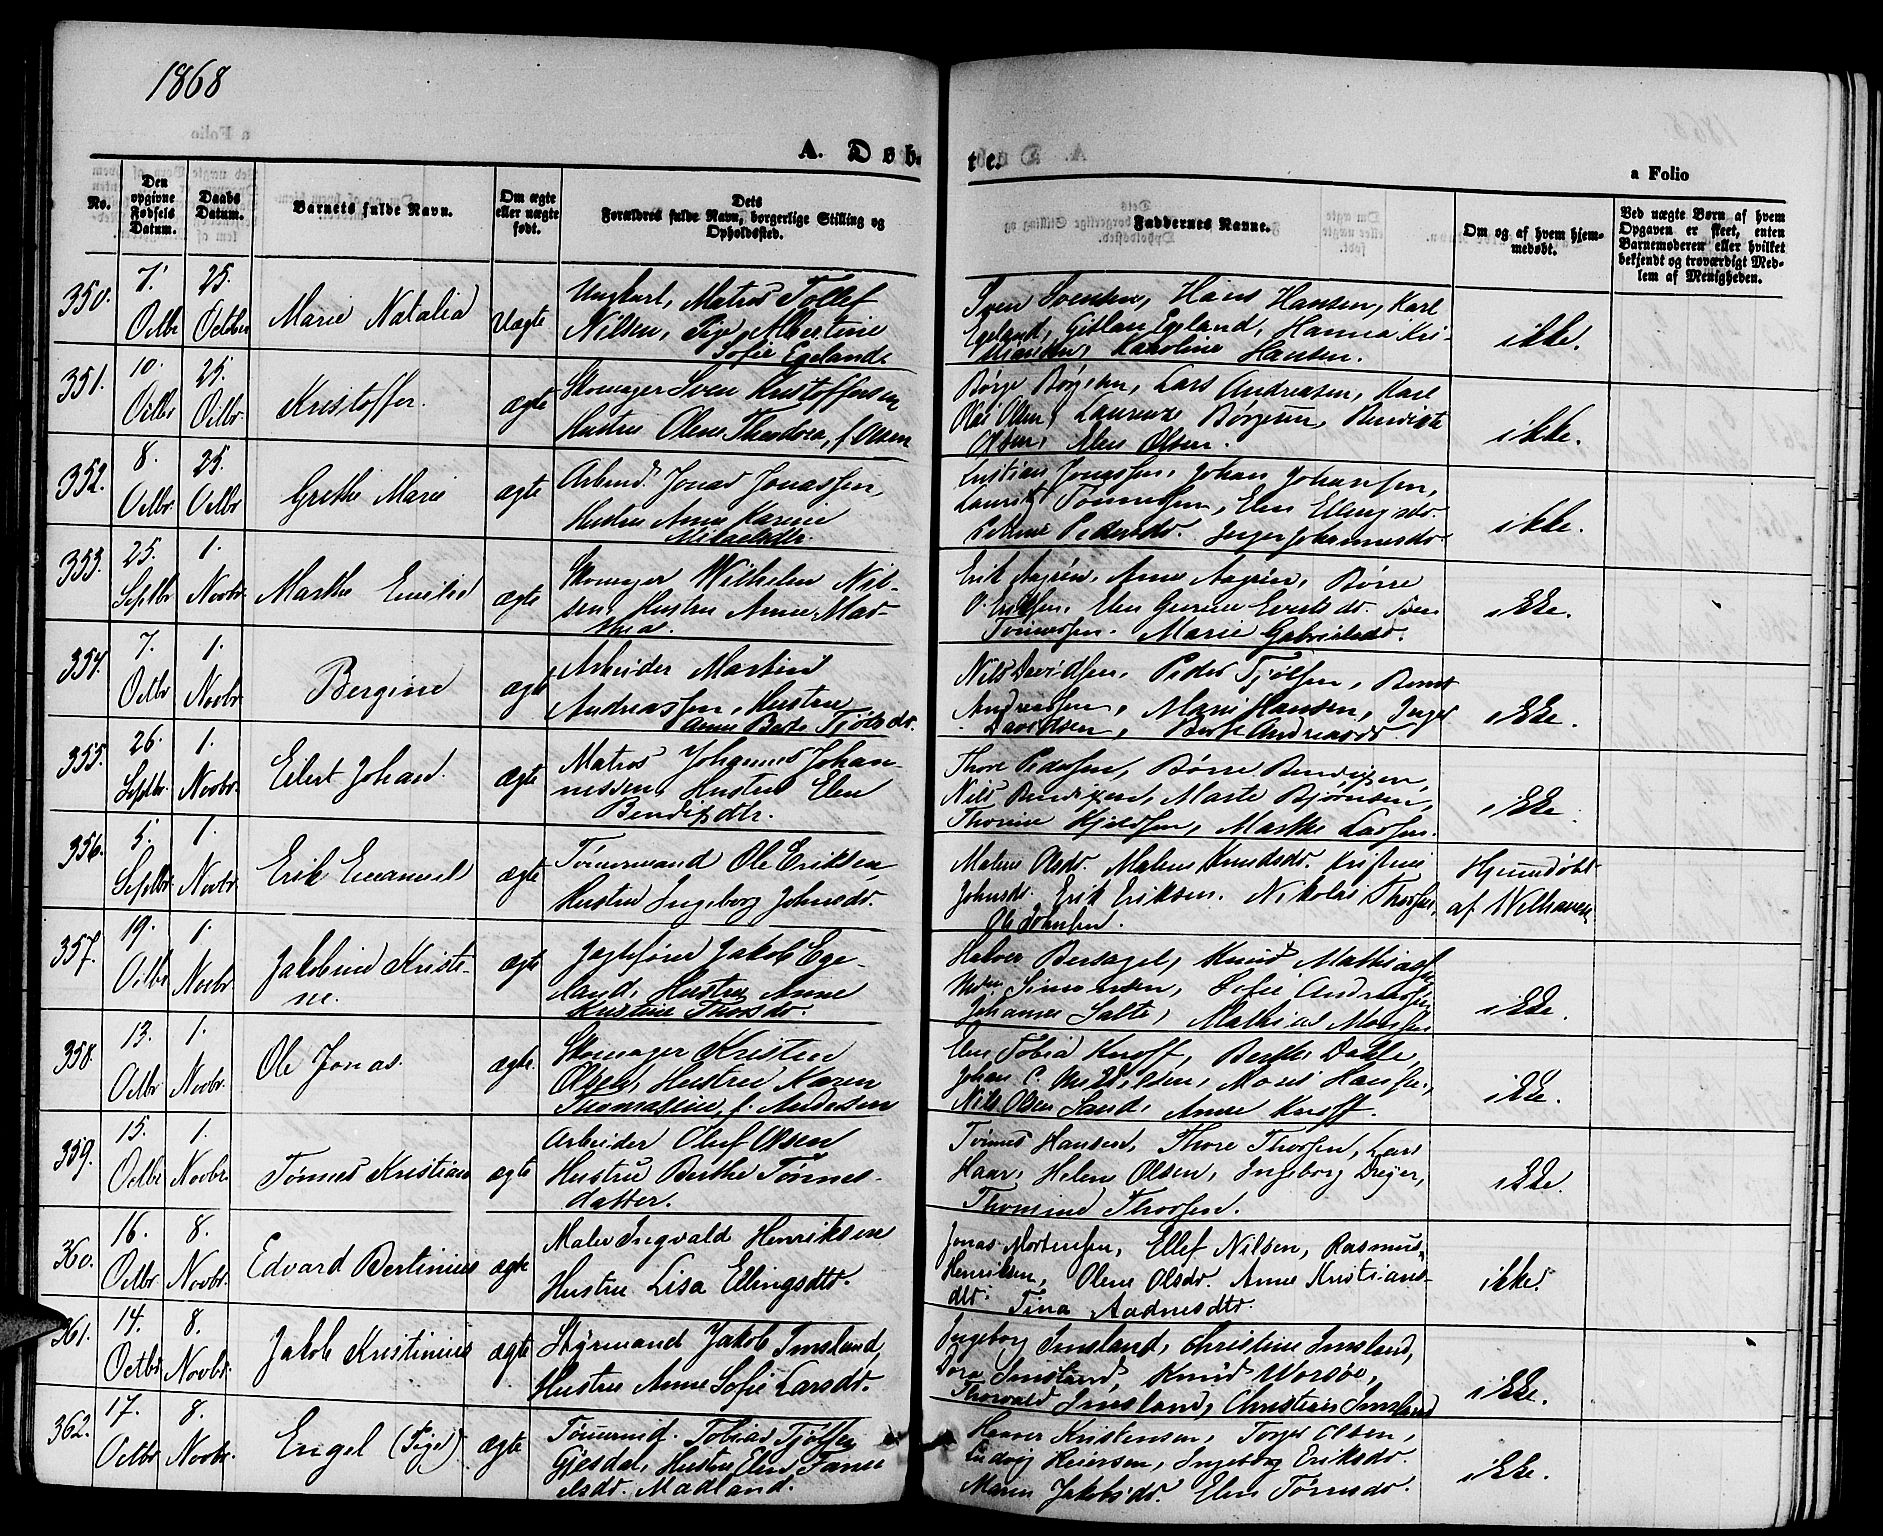 1868
A. Døb-
te.
a Folio
No.
Den opgivne Fødsels Datum.
Daabs Datum.
Barnets fulde Navn.
Om ægte eller uægte født.
Dets Forældres fulde Navn, borgerlige Stilling og Opholdssted.
Faddernes Navne.
Om og af hvem hjemmedøbt.
Ved uægte Børn af hvem Opgaven er skeet, enten Barnemoderen eller hvilket bekjendt og troværdigt Medlem af Menigheden.
350. 7. Octbr 25. October Marie Natalia Uægte
Ungkarl, Matros Tollef
Nilsen, Pige Albertine
Sofie Egeland
Sven Svensen, Hans Hansen, Karl
Egeland, Egeland, Hanna Kri-
Karoline Hansen.
ikke.
351. 10. Octbr 25. Octbr. Kristoffer. ægte
Skomager Sven Kristoffersen
Hustru Olene Theodora, f. Olsen
Børge Børgesen, Lars Andreasen, Karl
Olai Olsen, Laurenze Børgesen, Bendikte
Olsen, Olsen.
ikke.
352. 8. Octbr. 25. Octbr Grethe Marie ægte
Arbeid. Jonas Jonassen,
Hustru Anne Karine
Mikkelsdtr.
Jonassen, Johan Johansen,
Laurits Tønnessen, Elen Ellingsdr.
Pedersdr. Inger Johannesdr.
ikke.
353. 25. Septbr 1. Novbr. Marthe Emilie ægte
Skomager Wilhelm Nil-
sen, Hustru Anne Mar-
thea.
Erik Aagrén, Anne Aagrén, Børre
O. Eriksen, Elen Gurine Eriksdr.
Tønnessen. Marie Gabrielsdr.
ikke.
354. 7. Octbr 1. Novbr. Bergine ægte
Arbeider Martin
Andreassen, Hustru
Anne Berte Tjølsdr.
Nils Davidsen, Peder Tjølsen, Bernt
Andreassen, Marie Hansen, Inger
Davidsen, Berte Andreasdr.
ikke.
355. 26. Septbr. 1. Novbr. Eilert Johan. ægte
Matros Johannes Johan-
nessen, Hustru Elen
Bendixdtr.
Thore Pedersen, Børre Bendixen,
Nils Bendixen, Marte Bjørnsen,
Thomine Kjeldsen, Marthe Larsen.
ikke.
356. 5. Septbr. 1. Novbr. Erik Emanuel ægte
Tømmermand Ole Eriksen,
Hustru Ingeborg Johnsdr.
Malene Olsdr. Malene Knudsdr. Kristine
Johnsdr. Erik Eriksen. Nikolai Thorsen,
Ole Johnsen.
Hjemmedøbt
af Welhaven
357. 19. Octbr 1. Novbr. Jakobine Kristi-
ne. ægte
Jagtefører Jakob Ege-
land, Hustru Anne
Kirstine Thorsdr.
Halvor Bersagel, Knud Mathiasen,
Simonsen, Sofie Andreassen,
Johannes Salte, Mathias Monsen
ikke.
358. 13. Octbr 1. Novbr. Ole Jonas. ægte.
Skomager Kristen
Olsen, Hustru Karen
Thomasine, f. Andersen
Elen Tobia Knoff, Berthe Dahle,
Johan C. Mons Hansen,
Nils Olsen Sand, Anne Knoff.
ikke.
359. 15. Octbr 1. Novbr. Tønnes Kristian ægte
Arbeider Oluf Olsen
Hustru Berthe Tønnes-
datter.
Tønnes Hansen, Thore Thorsen, Lars
Haar, Helene Olsen, Ingeborg Dreyer,
Thomine Thorsen.
ikke.
360. 16. Octbr. 8. Novbr. Edvard Bertinius ægte
Maler Ingvald Henriksen
Hustru Lisa Ellingsdtr.
Jonas Mortensen, Ellef Nilsen, Rasmus
Henriksen, Olene Olsdr. Anne Kristians-
dtr. Tina Aadnesdtr.
ikke.
361. 14. Octbr 8. Novbr. Jakob Kristinius ægte
Styrmand Jakob Imsland,
Hustru Anne Sofie Larsdr.
Ingeborg Imsland, Christine Imsland,
Dora Imsland, Knud Worsøe,
Thorvald Imsland, Christian Imsland
ikke.
362. 17. Octbr 8. Novbr. Engel (Pige) ægte
Tømmermd. Tobias Tjølsen
Gjesdal, Hustru Elen Dani-
elsdr. Madland.
Haaver Kristensen, Torger Olsen,
Ludvig Reiersen, Ingeborg Eriksdr.
Maren Jakobsdr. Elen Tørresdr.
ikke.